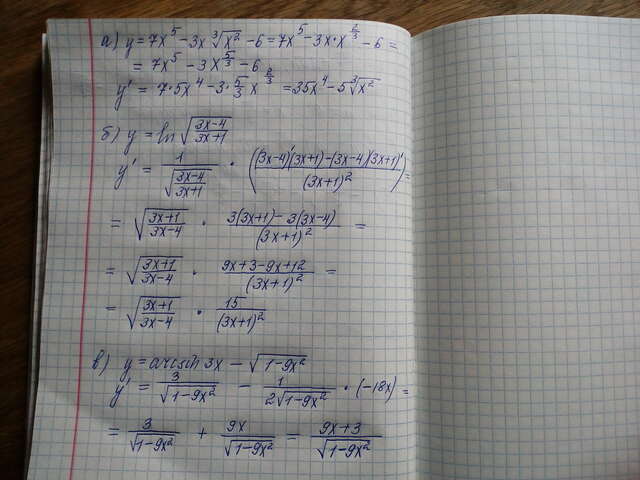 а) y = 7x⁵ - 3x ∛x² - 6 = 7x⁵ - 3x·x^(2/3) - 6 =
= 7x⁵ - 3x^(5/3) - 6
y' = 7·5x⁴ - 3·5/3 x^(2/3) = 35x⁴ - 5∛x²
б) y = ln √((3x-4)/(3x+1))
y' = 1/√((3x-4)/(3x+1)) · (((3x-4)'(3x+1)-(3x-4)(3x+1)')/(3x+1)²) =
= √((3x+1)/(3x-4)) · (3(3x+1)-3(3x-4))/(3x+1)² =
= √((3x+1)/(3x-4)) · (9x+3-9x+12)/(3x+1)² =
= √((3x+1)/(3x-4)) · 15/(3x+1)²
в) y = arcsin 3x - √(1-9x²)
y' = 3/√(1-9x²) - 1/(2√(1-9x²)) · (-18x) =
= 3/√(1-9x²) + 9x/√(1-9x²) = (9x+3)/√(1-9x²)